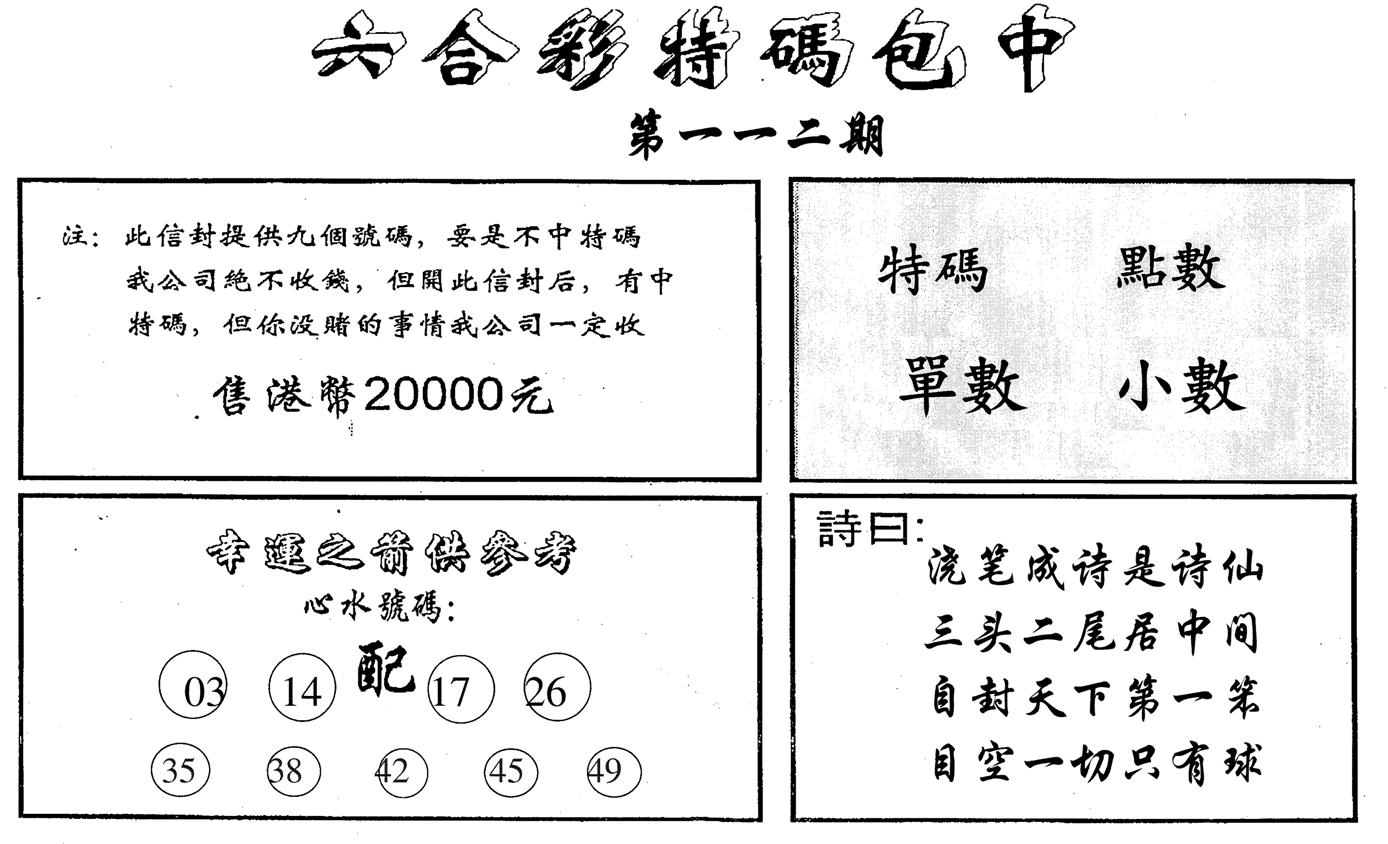 六合彩特碼包中
第一一二期
注：此信封提供九個號碼，要是不中特碼
我公司絶不收錢，但開此信封后，有中
特碼，但你没賭的事情我公司一定收
售港幣20000元
特碼 點數
單數 小數
幸運之箭供參考
心水號碼：
03 14 配 17 26
35 38 42 45 49
詩曰：
浇笔成诗是诗仙
三头二尾居中间
自封天下第一笨
目空一切只有球